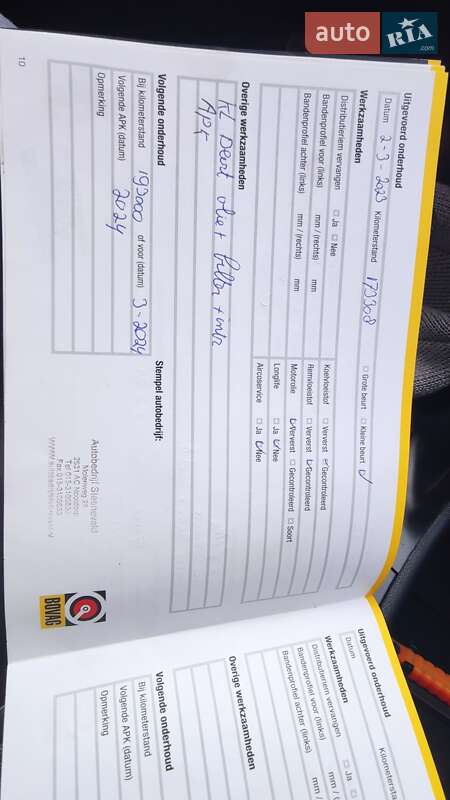 auto RIA.com
Uitgevoerd onderhoud
Datum 2-3-2023 Kilometerstand 179308
Werkzaamheden □ Grote beurt □ Kleine beurt
Distributieriem vervangen □ Ja □ Nee Koelvloeistof □ Ververst □ Gecontroleerd
Bandenprofiel voor (links) mm / (rechts) mm Remvloeistof □ Ververst □ Gecontroleerd
Bandenprofiel achter (links) mm / (rechts) mm Motorolie □ Ververst □ Gecontroleerd □ Soort
Longlife □ Ja □ Nee
Aircoservice □ Ja □ Nee
Overige werkzaamheden
KL Beurt olie + filter +
APK
Volgende onderhoud Stempel autobedrijf:
Bij kilometerstand 199000 of voor (datum) 3-2024
Volgende APK (datum) 2024
Opmerking
Autobedrijf Steeneveld
Molenweg 28
BOVAG
10
Uitgevoerd onderhoud
Datum Kilometersta
Werkzaamheden
Distributieriem vervangen □ Ja □
Bandenprofiel voor (links) mm
Bandenprofiel achter (links) mm
Overige werkzaamheden
Volgende onderhoud
Bij kilometerstand
Volgende APK (datum)
Opmerking